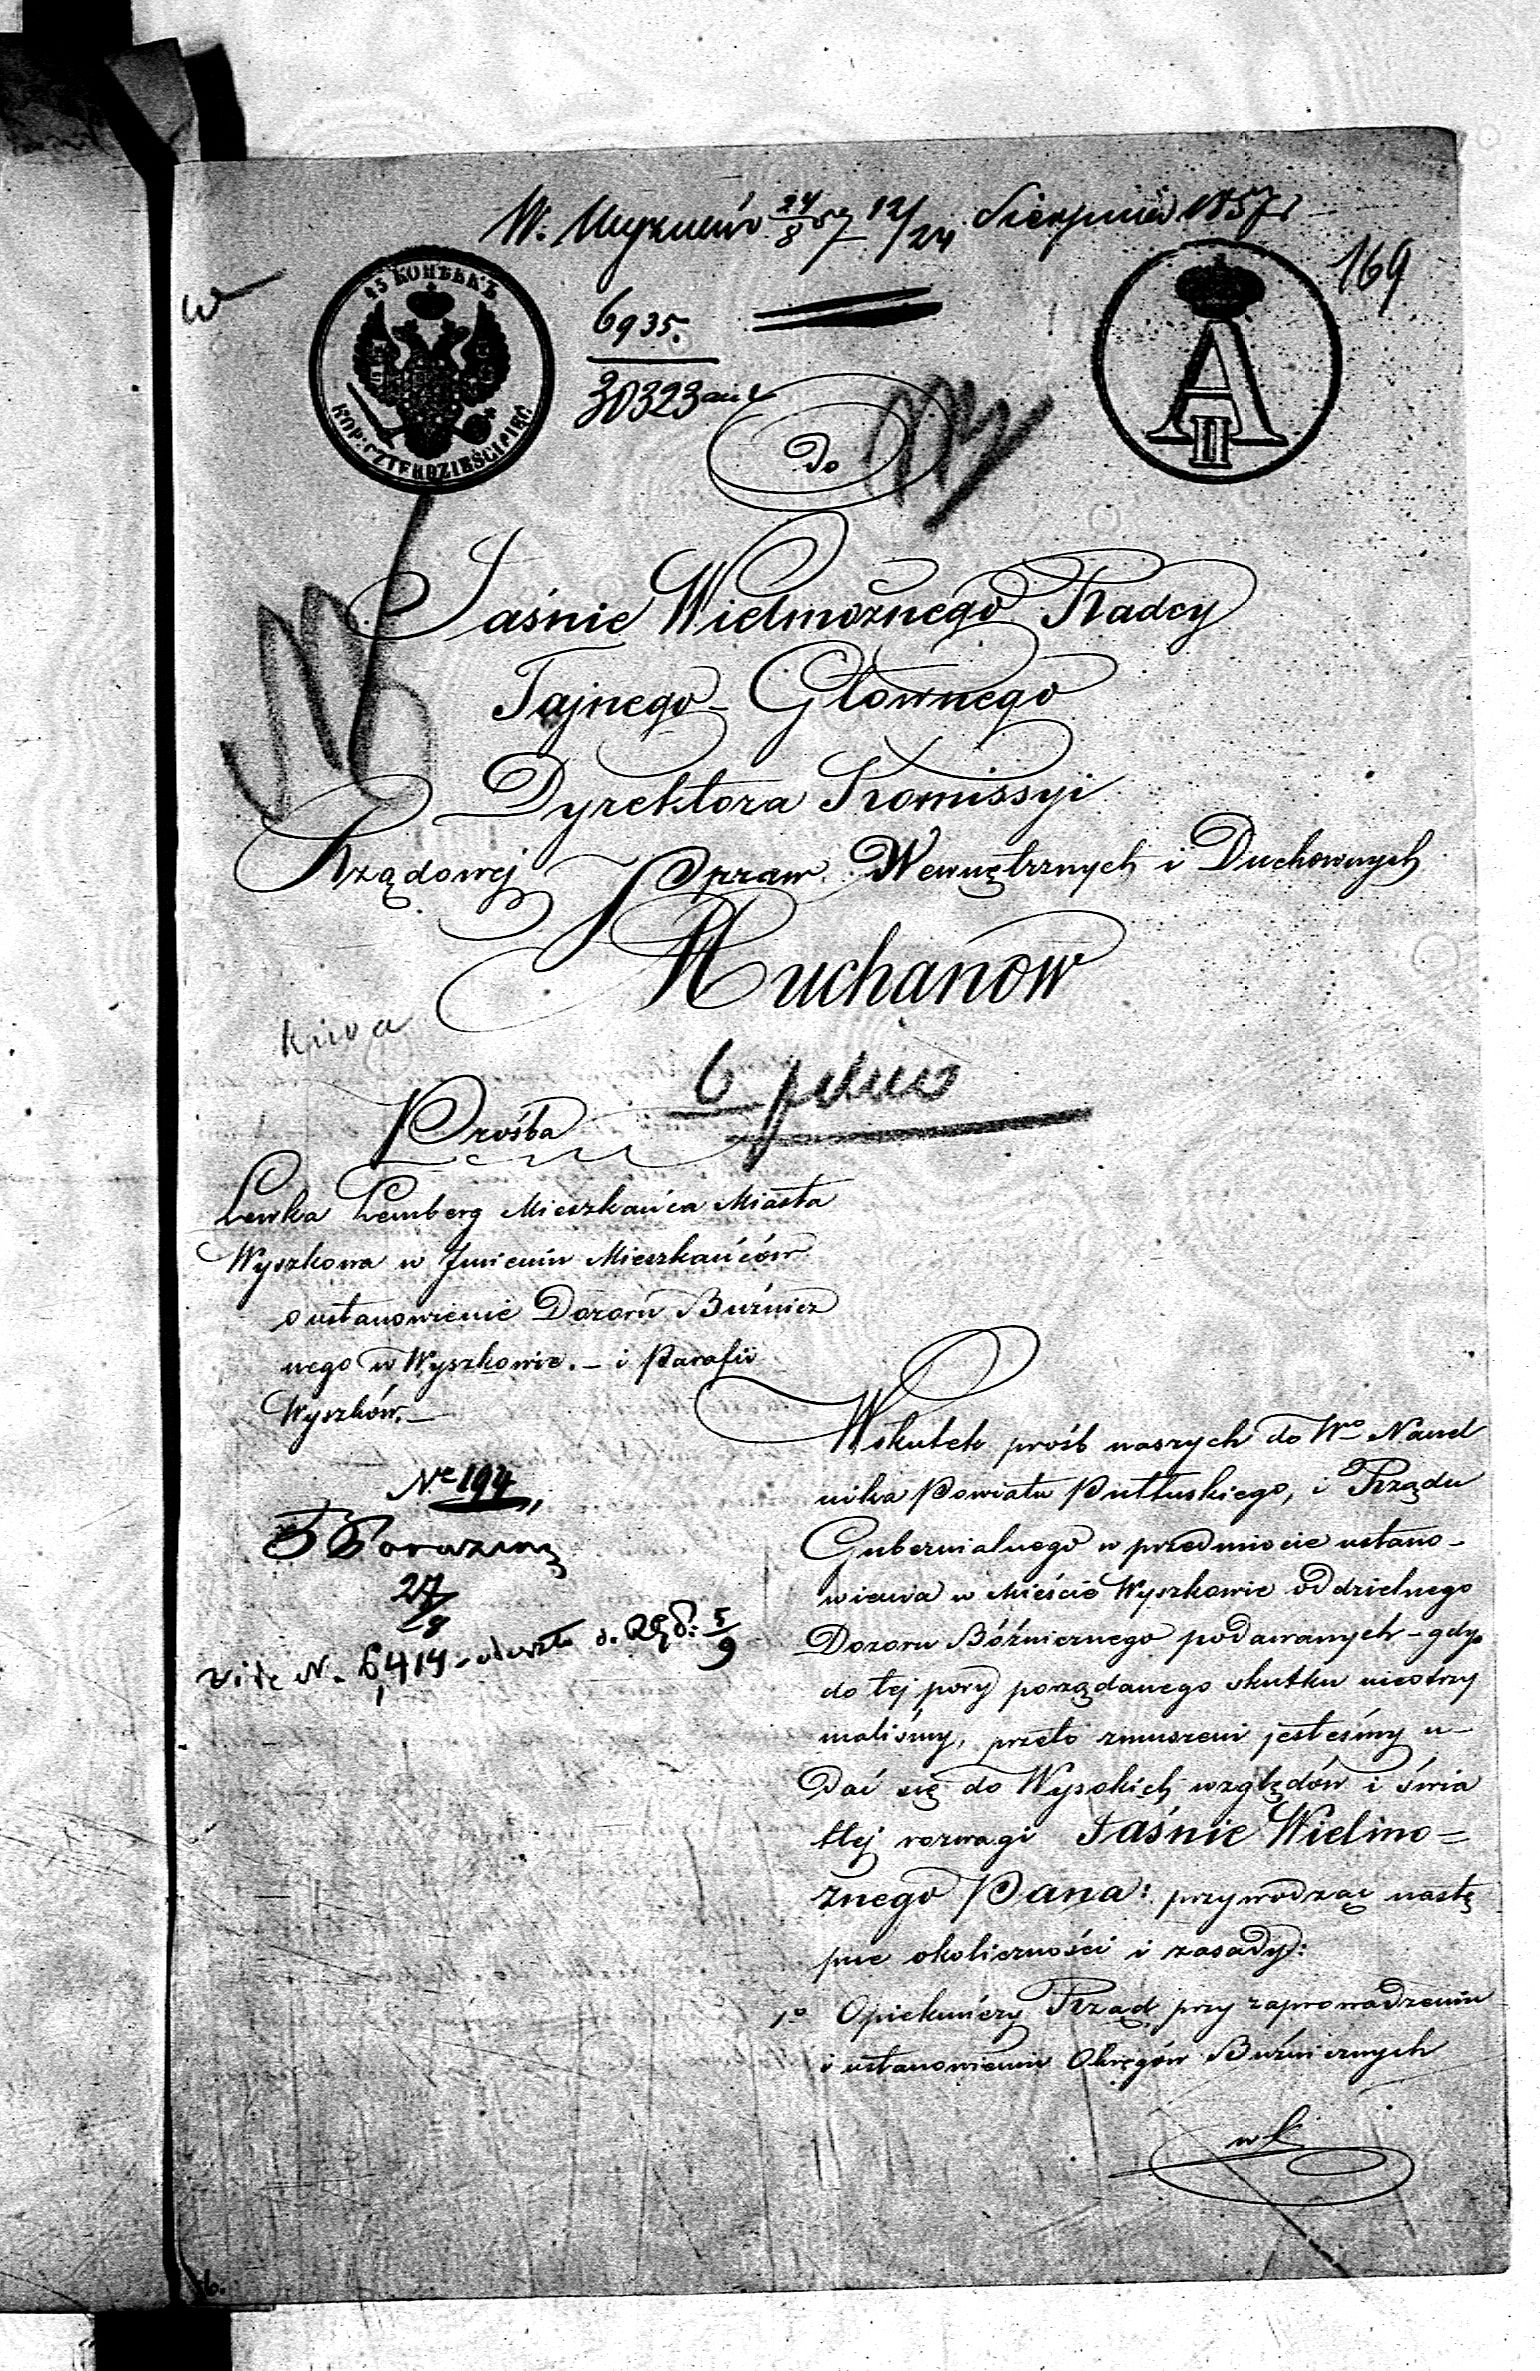 12/24 Sierpnia 1857 r
169
45 КОПѢЕКЪ
KOP: CZTERDZIEŚCI PIĘĆ
A II
6935.
30323
Do
Jaśnie Wielmożnego Radcy
Tajnego Głownego
Dyrektora Kommissyi
Rządowej Spraw Wewnętrznych i Duchownych
Muchanow
Prośba
Lewka Lemberg Mieszkańca Miasta
Wyszkowa w Jmieniu Mieszkańców
o ustanowienie Dozoru Buźnicz
nego w Wyszkowie. – i Parafii
Wyszków. –
Nº 194
27/8
vide N. 6,414 5/9
Wskutek prośb naszych do Wº Naczel
nika Powiatu Pułtuskiego, i Rządu
Gubernialnego w przedmiocie ustano-
wienia w Mieście Wyszkowie oddzielnego
Dozoru Bóźnicznego podawanych – gdy
do tej pory porządanego skutku nieotrzy
maliśmy, przeto zmuszeni jesteśmy u-
dać się do Wysokich względów i świa
tłej rozwagi Jaśnie Wielmo=
żnego Pana: przywodząc nastę
pne okoliczności i zasady:
1º Opiekuńczy Rząd, przy zaprowadzeniu
i ustanowieniu Okręgów Buźnicznych